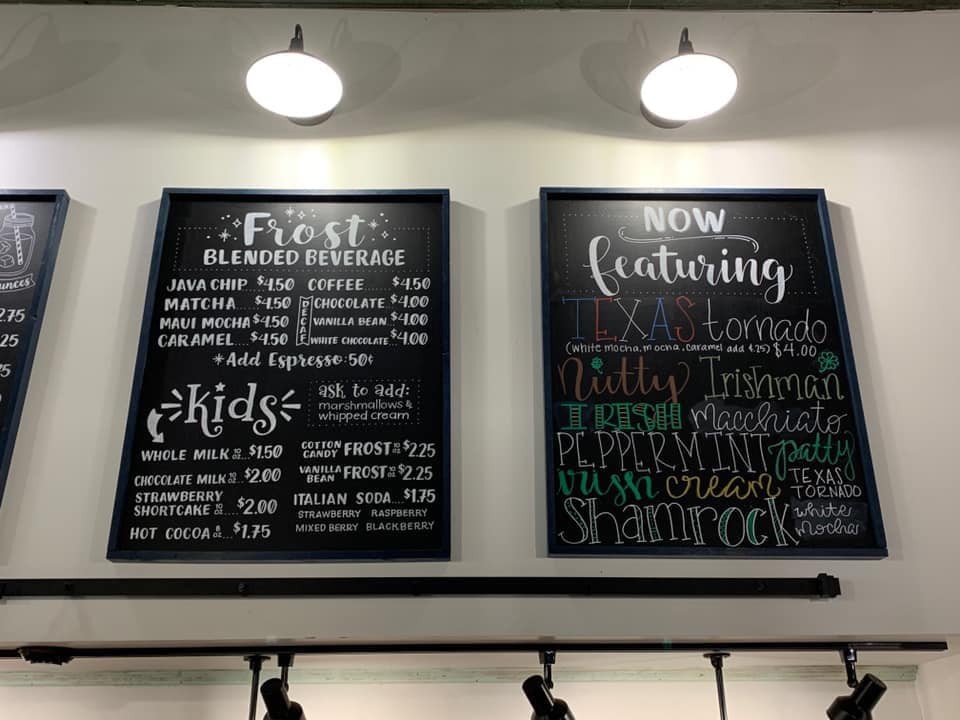 ounces
2.75
.25
Frost
BLENDED BEVERAGE
JAVA CHIP $4.50 COFFEE $4.50
MATCHA $4.50 CHOCOLATE $4.00
MAUI MOCHA $4.50 DECAF VANILLA BEAN $4.00
CARAMEL.... $4.50 WHITE CHOCOLATE $4.00
*Add Espresso: 50¢
kids
ask to add:
marshmallows &
whipped cream
WHOLE MILK 10 OZ... $1.50
CHOCOLATE MILK 10 OZ... $2.00
STRAWBERRY
SHORTCAKE 10 OZ... $2.00
HOT COCOA 8 OZ... $1.75
COTTON CANDY FROST 10 OZ $2.25
VANILLA BEAN FROST 10 OZ $2.25
ITALIAN SODA.... $1.75
STRAWBERRY RASPBERRY
MIXED BERRY BLACKBERRY
NOW
featuring
TEXAS tornado
(white mocha, mocha, caramel add $.25) $4.00
Nutty Irishman
IRISH macchiato
PEPPERMINT patty
irish cream TEXAS TORNADO
Shamrock white mocha